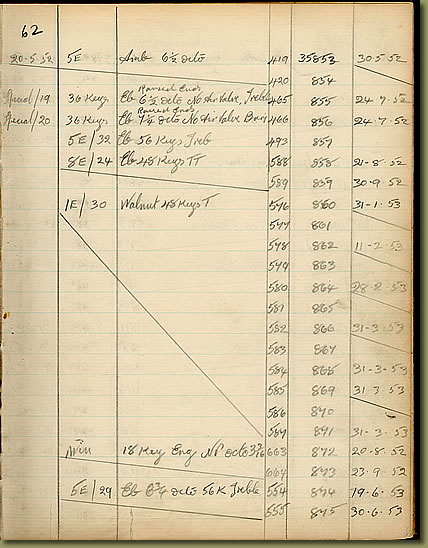 62
20.5.52 5E Amb 6½ Octo 419 35853 30.5.52
420 854
Raised Ends
Special/19 36 Keys Eb 6½ Octo No Air Valve, Treble 465 855 24.7.52
Raised Ends
Special/20 36 Keys Eb 7¼ Octo No Air Valve 466 856 24.7.52
5E/32 Eb 56 Keys Treb 493 857
8E/24 Eb 48 Keys TT 588 858 21-8-52
589 859 30-9.52
1E/30 Walnut 48 Keys T 576 860 31-1.53
577 861
578 862 11-2.53
579 863
580 864 28.2.53
581 865
582 866 31-3.53
583 867
584 868 31-3-53
585 869 31.3.53
586 870
587 871 31-3.53
Min 18 Key Eng NP Octo 663 872 20-8.52
664 873 23.9.52
5E/29 Eb 8¾ Octo 56K Treble 554 874 19-6.53
555 875 30-6.53